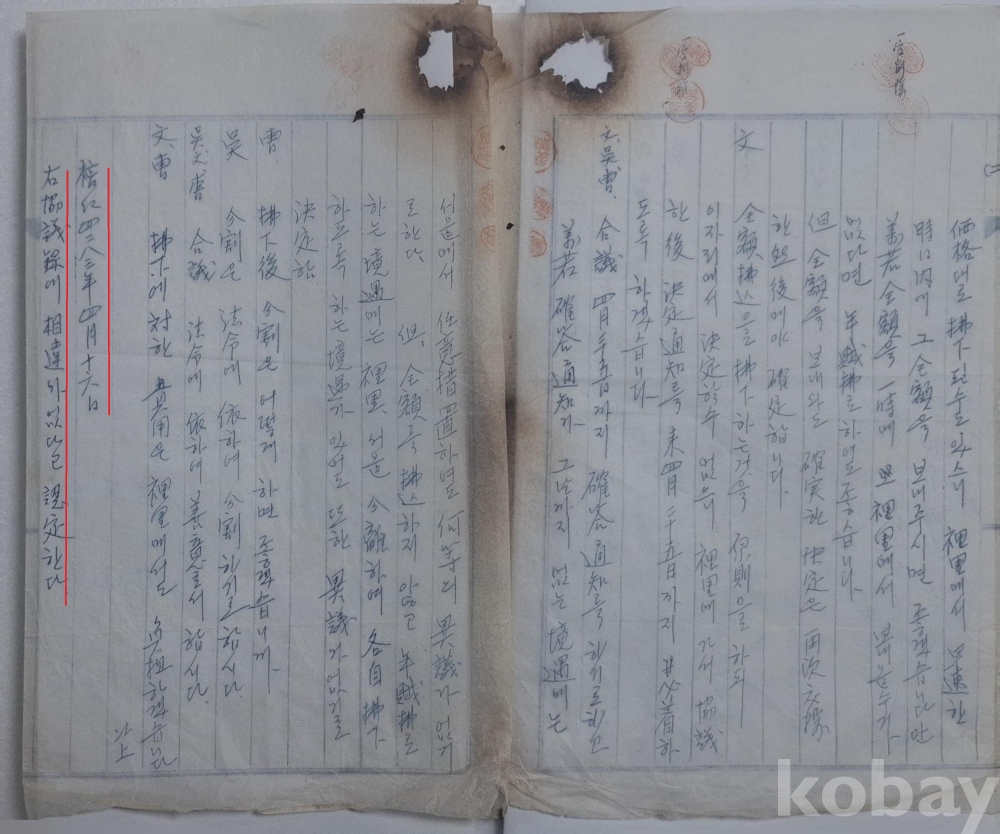 價格대로 拂下된수를 있스니 裡里에서 早速한
時日內에 그 全額을 보내주시면 좋겠습니다만
萬若 全額을 一時에 裡里에서 내놓수가
없다면 年賦拂로 하여도 좋습니다.
但 全額을 보내와도 確実한 決定은 再次 交涉
한 然後에야 確定합니다.
文 全額拂込을 拂下하는것을 原則을 하되
이자리에서 決定할수 없으니 裡里에 가서 協議
한 後 決定通知를 来四月二十五日까지 必着하
도록 하겠습니다.
文、吳、曺、合議 四月二十五日까지 確答通知를 하기로 하고
萬若 確答通知가 그날까지 없는 境遇에는
서울에서 任意措置하여도 何等의 異議가 없기
로 한다. 但, 全額을 拂込하지 않고 年賦拂로
하는 境遇에는 裡里, 서울 分離하여 各自 拂下
하도록 하는 境遇가 있어도 또한 異議가 없기로
決定함
曺. 拂下後 分割은 어떻게 하면 좋겠습니까.
吳 分割은 法令에 依하여 分割하기로 합시다
吳文曺 合議 法令에 依하여 善意로서 합시다.
文、曺 拂下에 対한 費用은 裡里에서도 負担하겠습니다
以上
檀紀四二八三年 四月 十六日
右協議錄에 相違가 없다고 認定한다
一字削除
kobay